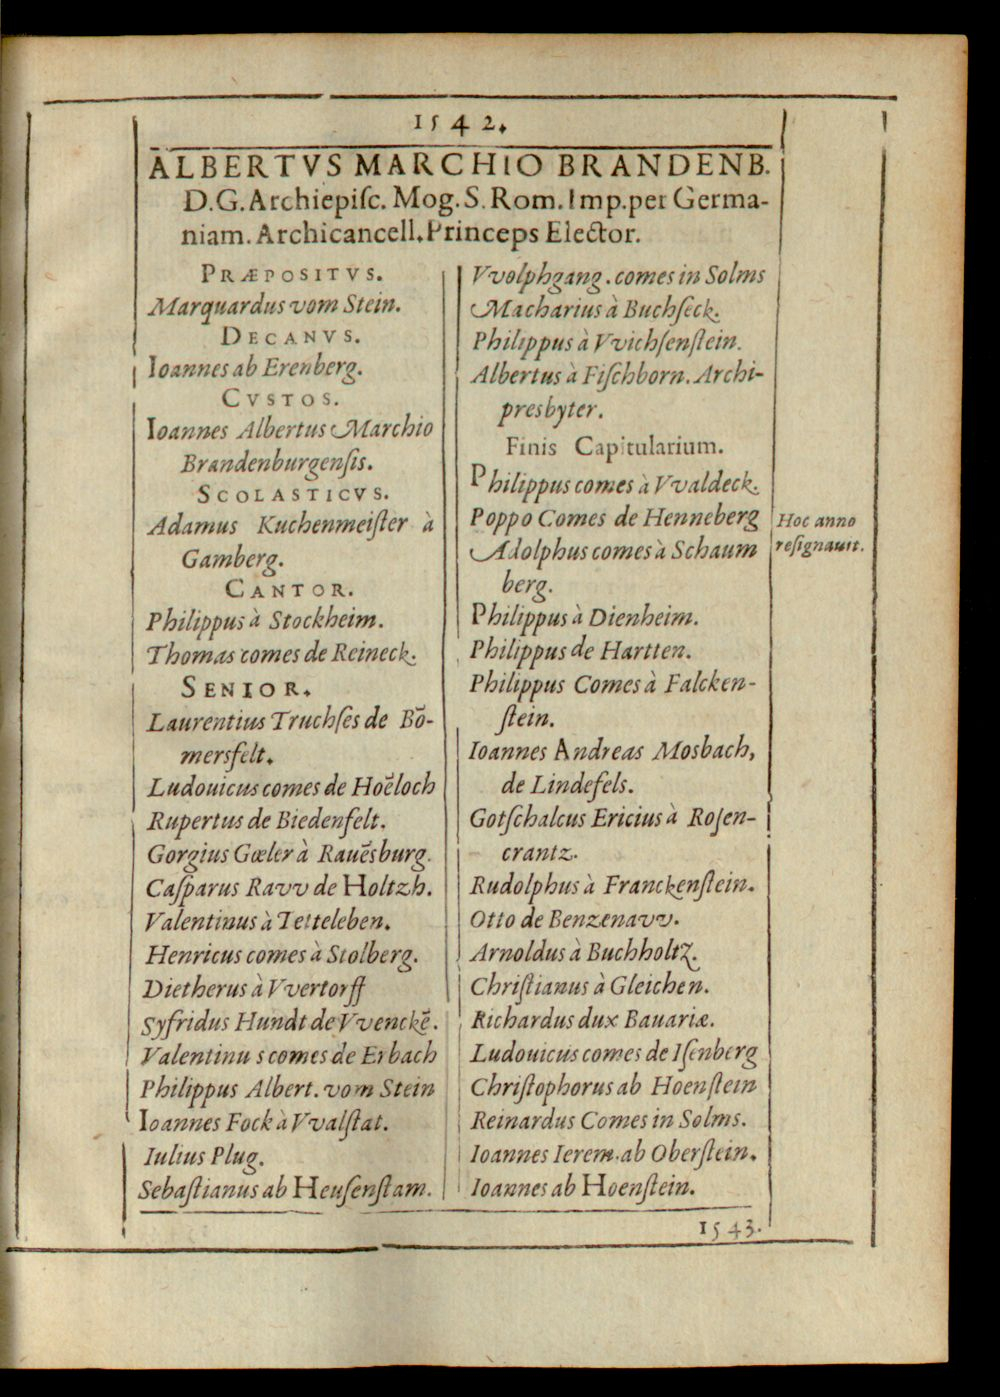 1542.
ALBERTVS MARCHIO BRANDENB.
D.G. Archiepiſc. Mog. S. Rom. Imp. per Germa-
niam. Archicancell. Princeps Elector.
PRÆPOSITVS.
Marquardus vom Stein.
DECANVS.
Ioannes ab Erenberg.
CVSTOS.
Ioannes Albertus Marchio
Brandenburgenſis.
SCOLASTICVS.
Adamus Kuchenmeiſter à
Gamberg.
CANTOR.
Philippus à Stockheim.
Thomas comes de Reineck.
SENIOR.
Laurentius Truchſes de Bō-
mersfelt.
Ludouicus comes de Hoēloch
Rupertus de Biedenfelt.
Gorgius Gœler à Rauēsburg.
Caſparus Ravv de Holtzh.
Valentinus à Tetteleben.
Henricus comes à Stolberg.
Dietherus à Vvertorff
Syfridus Hundt de Vvenckē.
Valentinu s comes de Erbach
Philippus Albert. vom Stein
Ioannes Fock à Vvalſtat.
Iulius Plug.
Sebaſtianus ab Heuſenſtam.
Vvolphgang. comes in Solms
Macharius à Buchſeck.
Philippus à Vvichſenſtein.
Albertus à Fiſchborn. Archi-
presbyter.
Finis Capitularium.
Philippus comes à Vvaldeck.
Poppo Comes de Henneberg
Adolphus comes à Schaum
berg.
Philippus à Dienheim.
Philippus de Hartten.
Philippus Comes à Falcken-
ſtein.
Ioannes Andreas Mosbach,
de Lindefels.
Gotſchalcus Ericius à Roſen-
crantz.
Rudolphus à Franckenſtein.
Otto de Benzenavv.
Arnoldus à Buchholtz.
Chriſtianus à Gleichen.
Richardus dux Bauariæ.
Ludouicus comes de Iſenberg
Chriſtophorus ab Hoenſtein
Reinardus Comes in Solms.
Ioannes Ierem. ab Oberſtein.
Ioannes ab Hoenſtein.
Hoc anno
reſignauit.
1543.